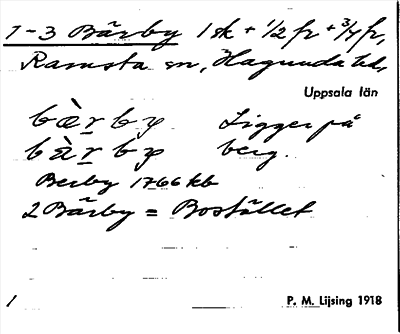 1-3 Bärby 1 sk + 1/2 fr + 3/4 fr,
Ramsta sn, Hagunda hd,
Uppsala län
bæ̀rby Ligger på
bàrby berg.
Berby 1766 kb
2 Bärby = Bostället
1 P. M. Lijsing 1918